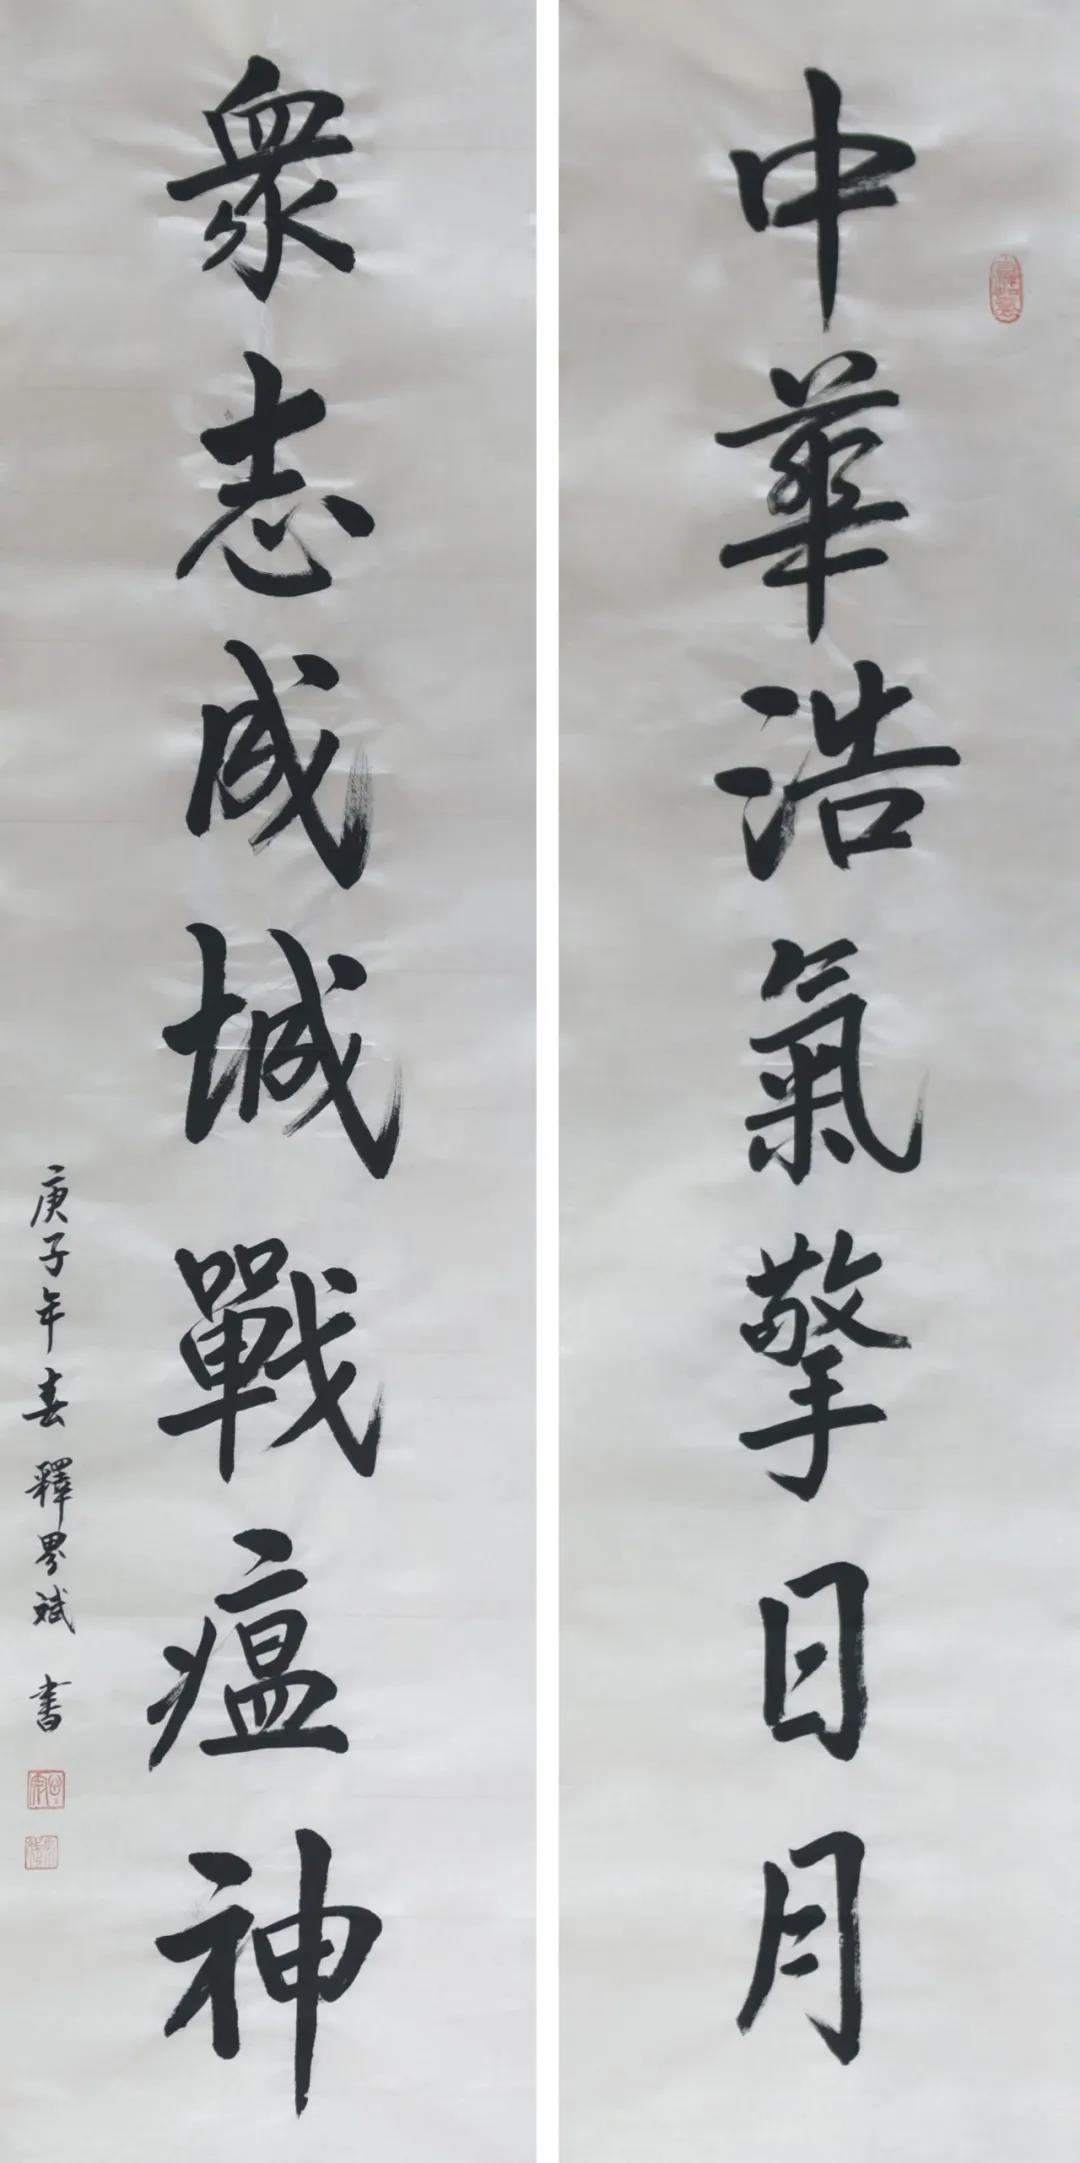 中華浩氣擎日月
眾志成城戰瘟神
庚子年春釋界斌書